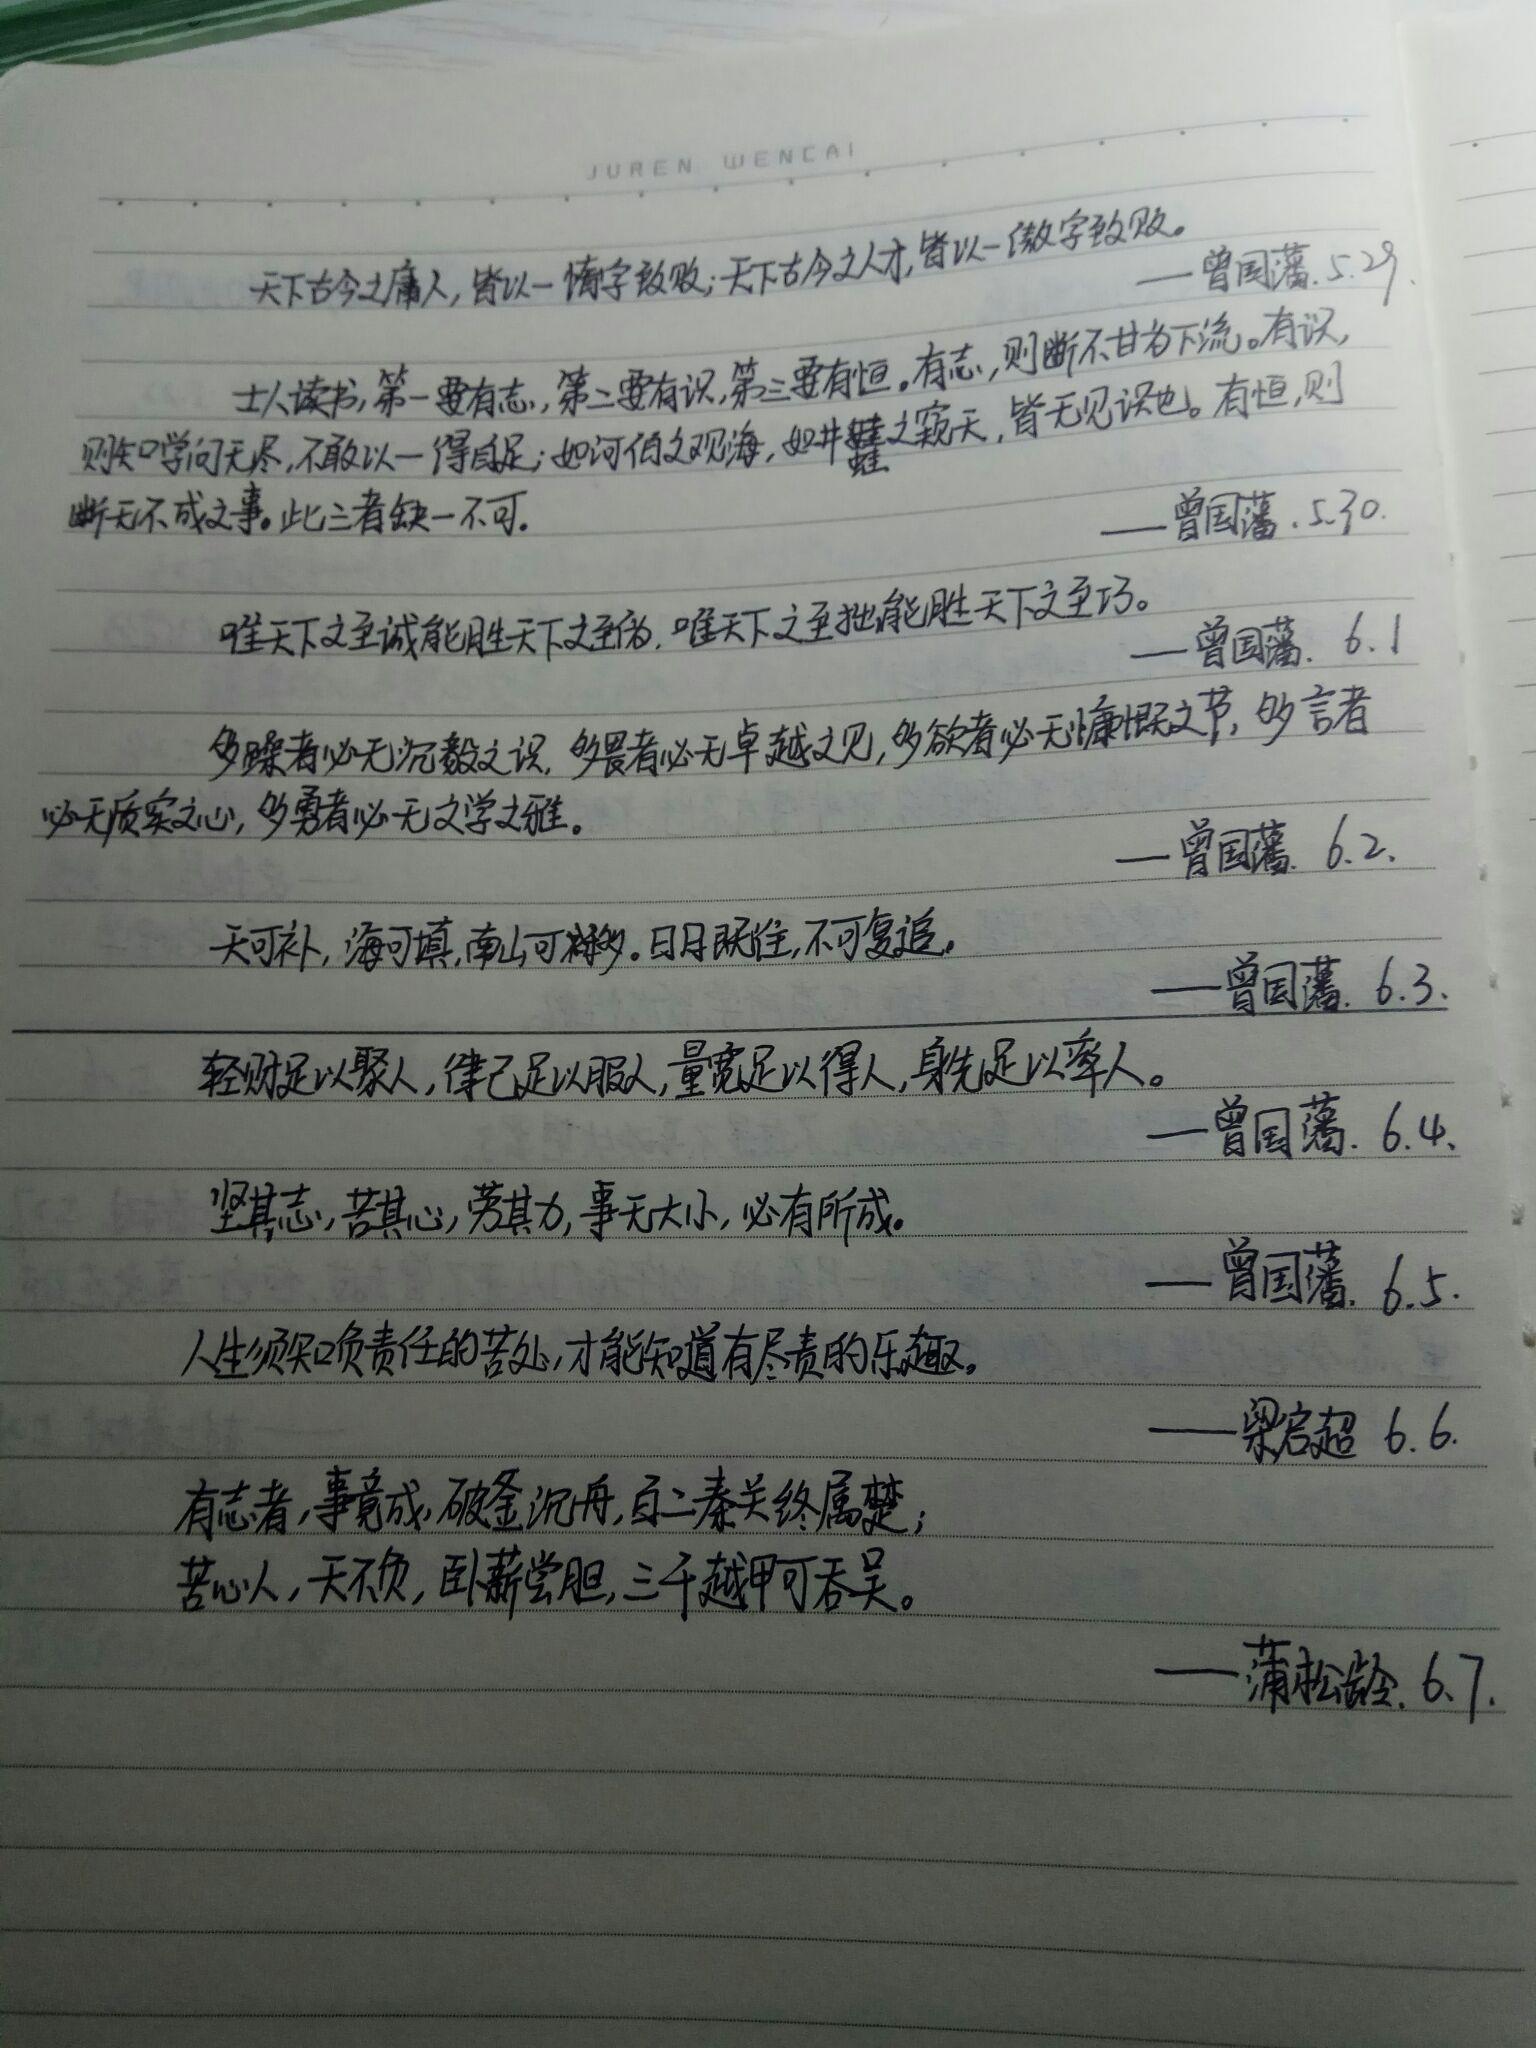 JUREN WENCAI
天下古今之庸人，皆以一惰字致败；天下古今之人才，皆以一傲字致败。
——曾国藩.5.29.
士人读书，第一要有志，第二要有识，第三要有恒。有志，则断不甘为下流。有识，
则知学问无尽，不敢以一得自足；如河伯之观海，如井蛙之窥天，皆无见识也。有恒，则
断无不成之事。此三者缺一不可。
——曾国藩.5.30.
唯天下之至诚能胜天下之至伪，唯天下之至拙能胜天下之至巧。
——曾国藩. 6.1
多躁者必无沉毅之识，多畏者必无卓越之见，多欲者必无慷慨之节，多言者
必无质实之心，多勇者必无文学之雅。
——曾国藩. 6.2.
天可补，海可填，南山可移。日月既往，不可复追。
——曾国藩. 6.3.
轻财足以聚人，律己足以服人，量宽足以得人，身先足以率人。
——曾国藩. 6.4.
坚其志，苦其心，劳其力，事无大小，必有所成。
——曾国藩. 6.5.
人生须知负责任的苦处，才能知道有尽责的乐趣。
——梁启超 6.6.
有志者，事竟成，破釜沉舟，百二秦关终属楚；
苦心人，天不负，卧薪尝胆，三千越甲可吞吴。
——蒲松龄. 6.7.